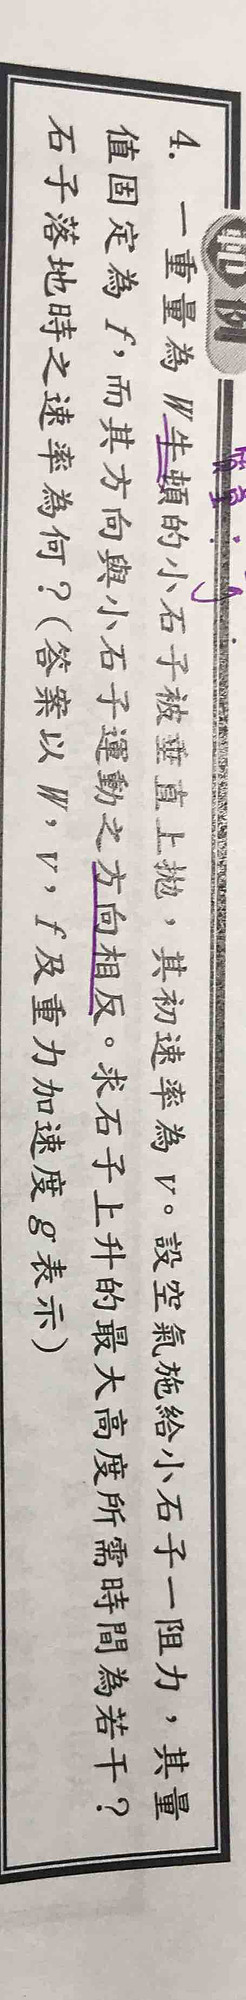 範例
4. 一重量為 W 牛頓的小石子被垂直上拋，其初速率為 v。設空氣施給小石子一阻力，其量
值固定為 f，而其方向與小石子運動之方向相反。求石子上升的最大高度所需時間為若干？
石子落地時之速率為何？（答案以 W，v，f 及重力加速度 g 表示）